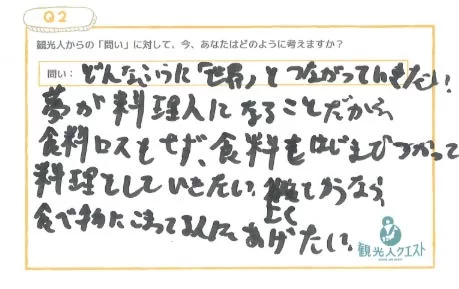 Q2
観光人からの「問い」に対して、今、あなたはどのように考えますか?
問い: どんなふうに「世界」とつながっていきたい!
夢が料理人になることだから、
食料ロスもせず、食料をはじまびつかって
料理をしていきたい。捨てるなら
食べ物にこまってる人に あげたい。
観光人クエスト